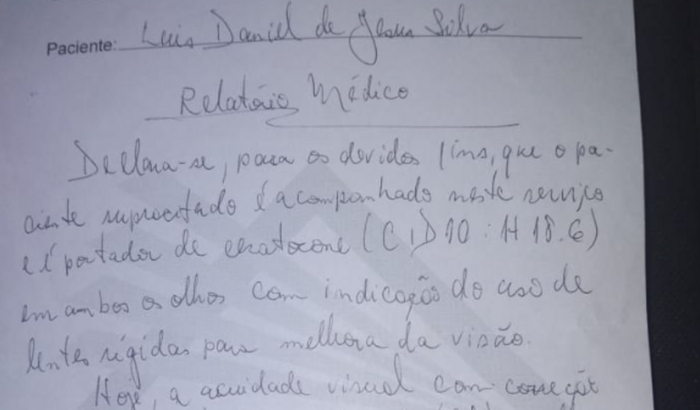 Paciente: Luis Daniel de Jesus Silva
Relatório Médico
Declara-se, para os devidos fins, que o pa-
ciente supracitado é acompanhado neste serviço
e é portador de ceratocone (CID 10 : H 18.6)
em ambos os olhos com indicação do uso de
lentes rígidas para melhora da visão.
Hoje, a acuidade visual com correção